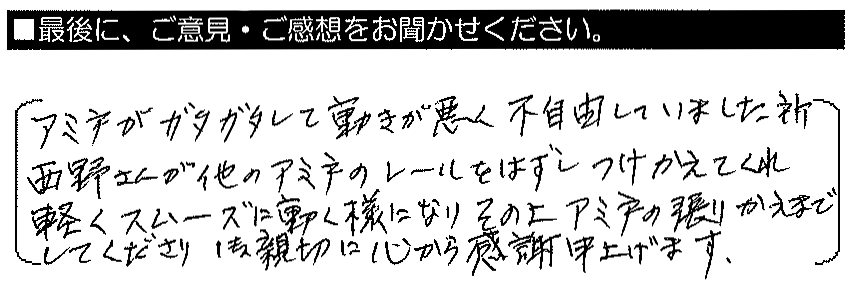 ■最後に、ご意見・ご感想をお聞かせください。
アミ戸がガタガタして動きが悪く不自由していました所
西野さんが他のアミ戸のレールをはずしつけかえてくれ
軽くスムーズに動く様になりその上アミ戸の張りかえまで
してくださり御親切に心から感謝申上げます.